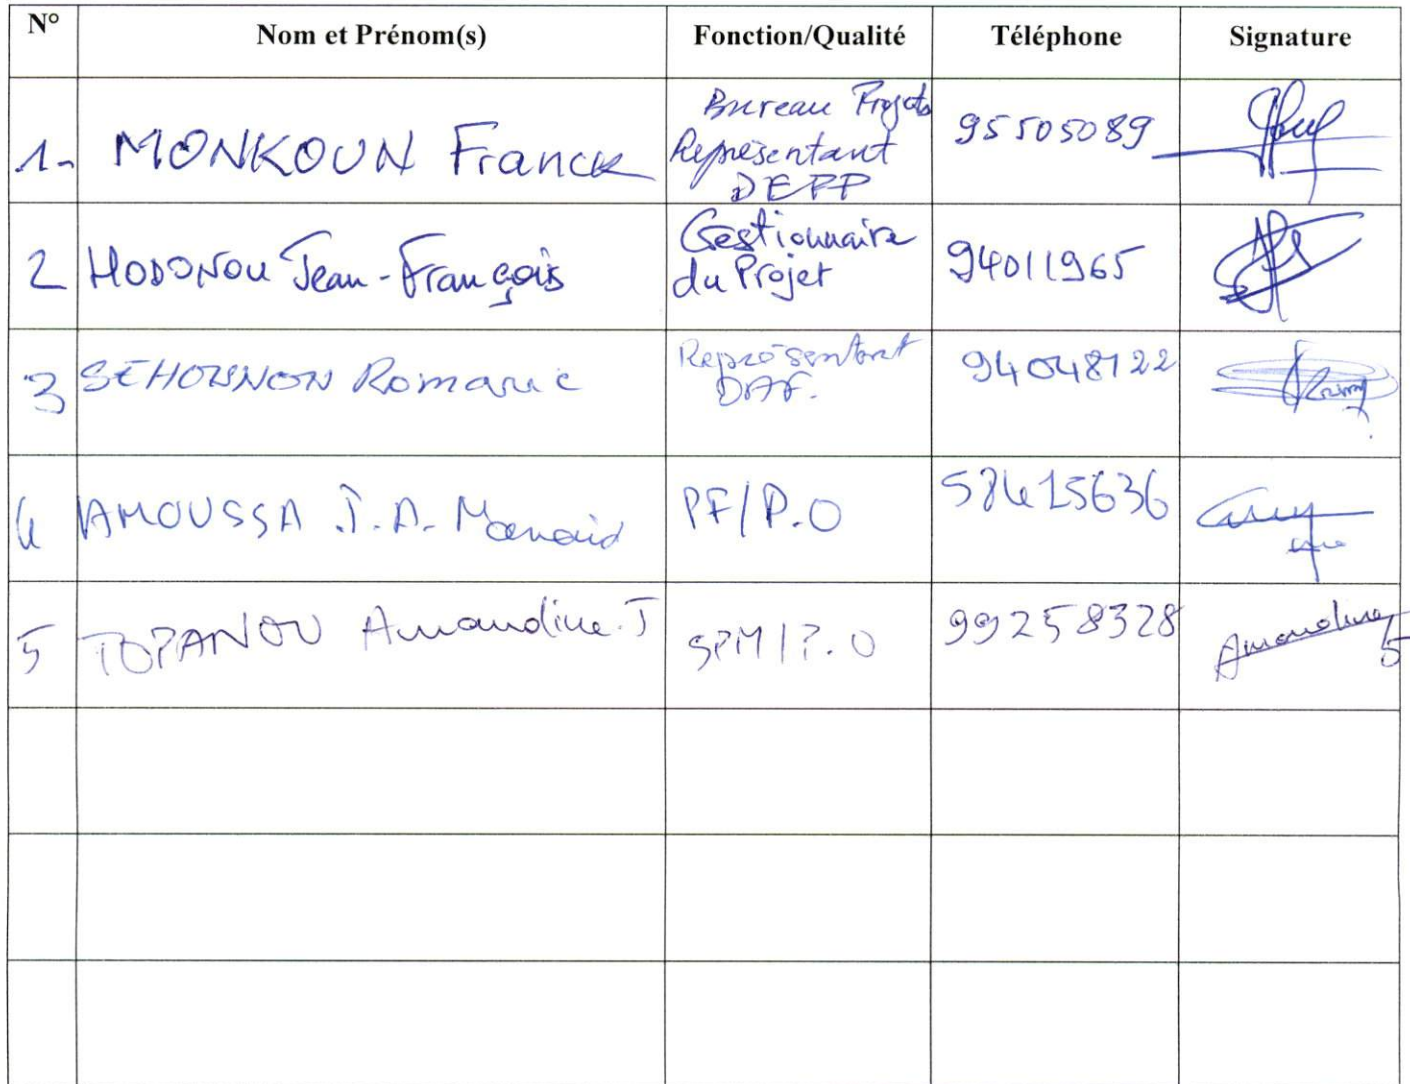 N° Nom et Prénom(s) Fonction/Qualité Téléphone Signature
1- MONKOUN Franck Bureau Projets Représentant DEPP 95505089
2 HODONOU Jean-François Gestionnaire du Projet 94011965
3 SEHOUNON Romaric Représentant DAF. 94048122
4 AMOUSSA J. A. PF/P.O
5 TOPANOU Amandine.J SPM/P.O 99258328 Amandine